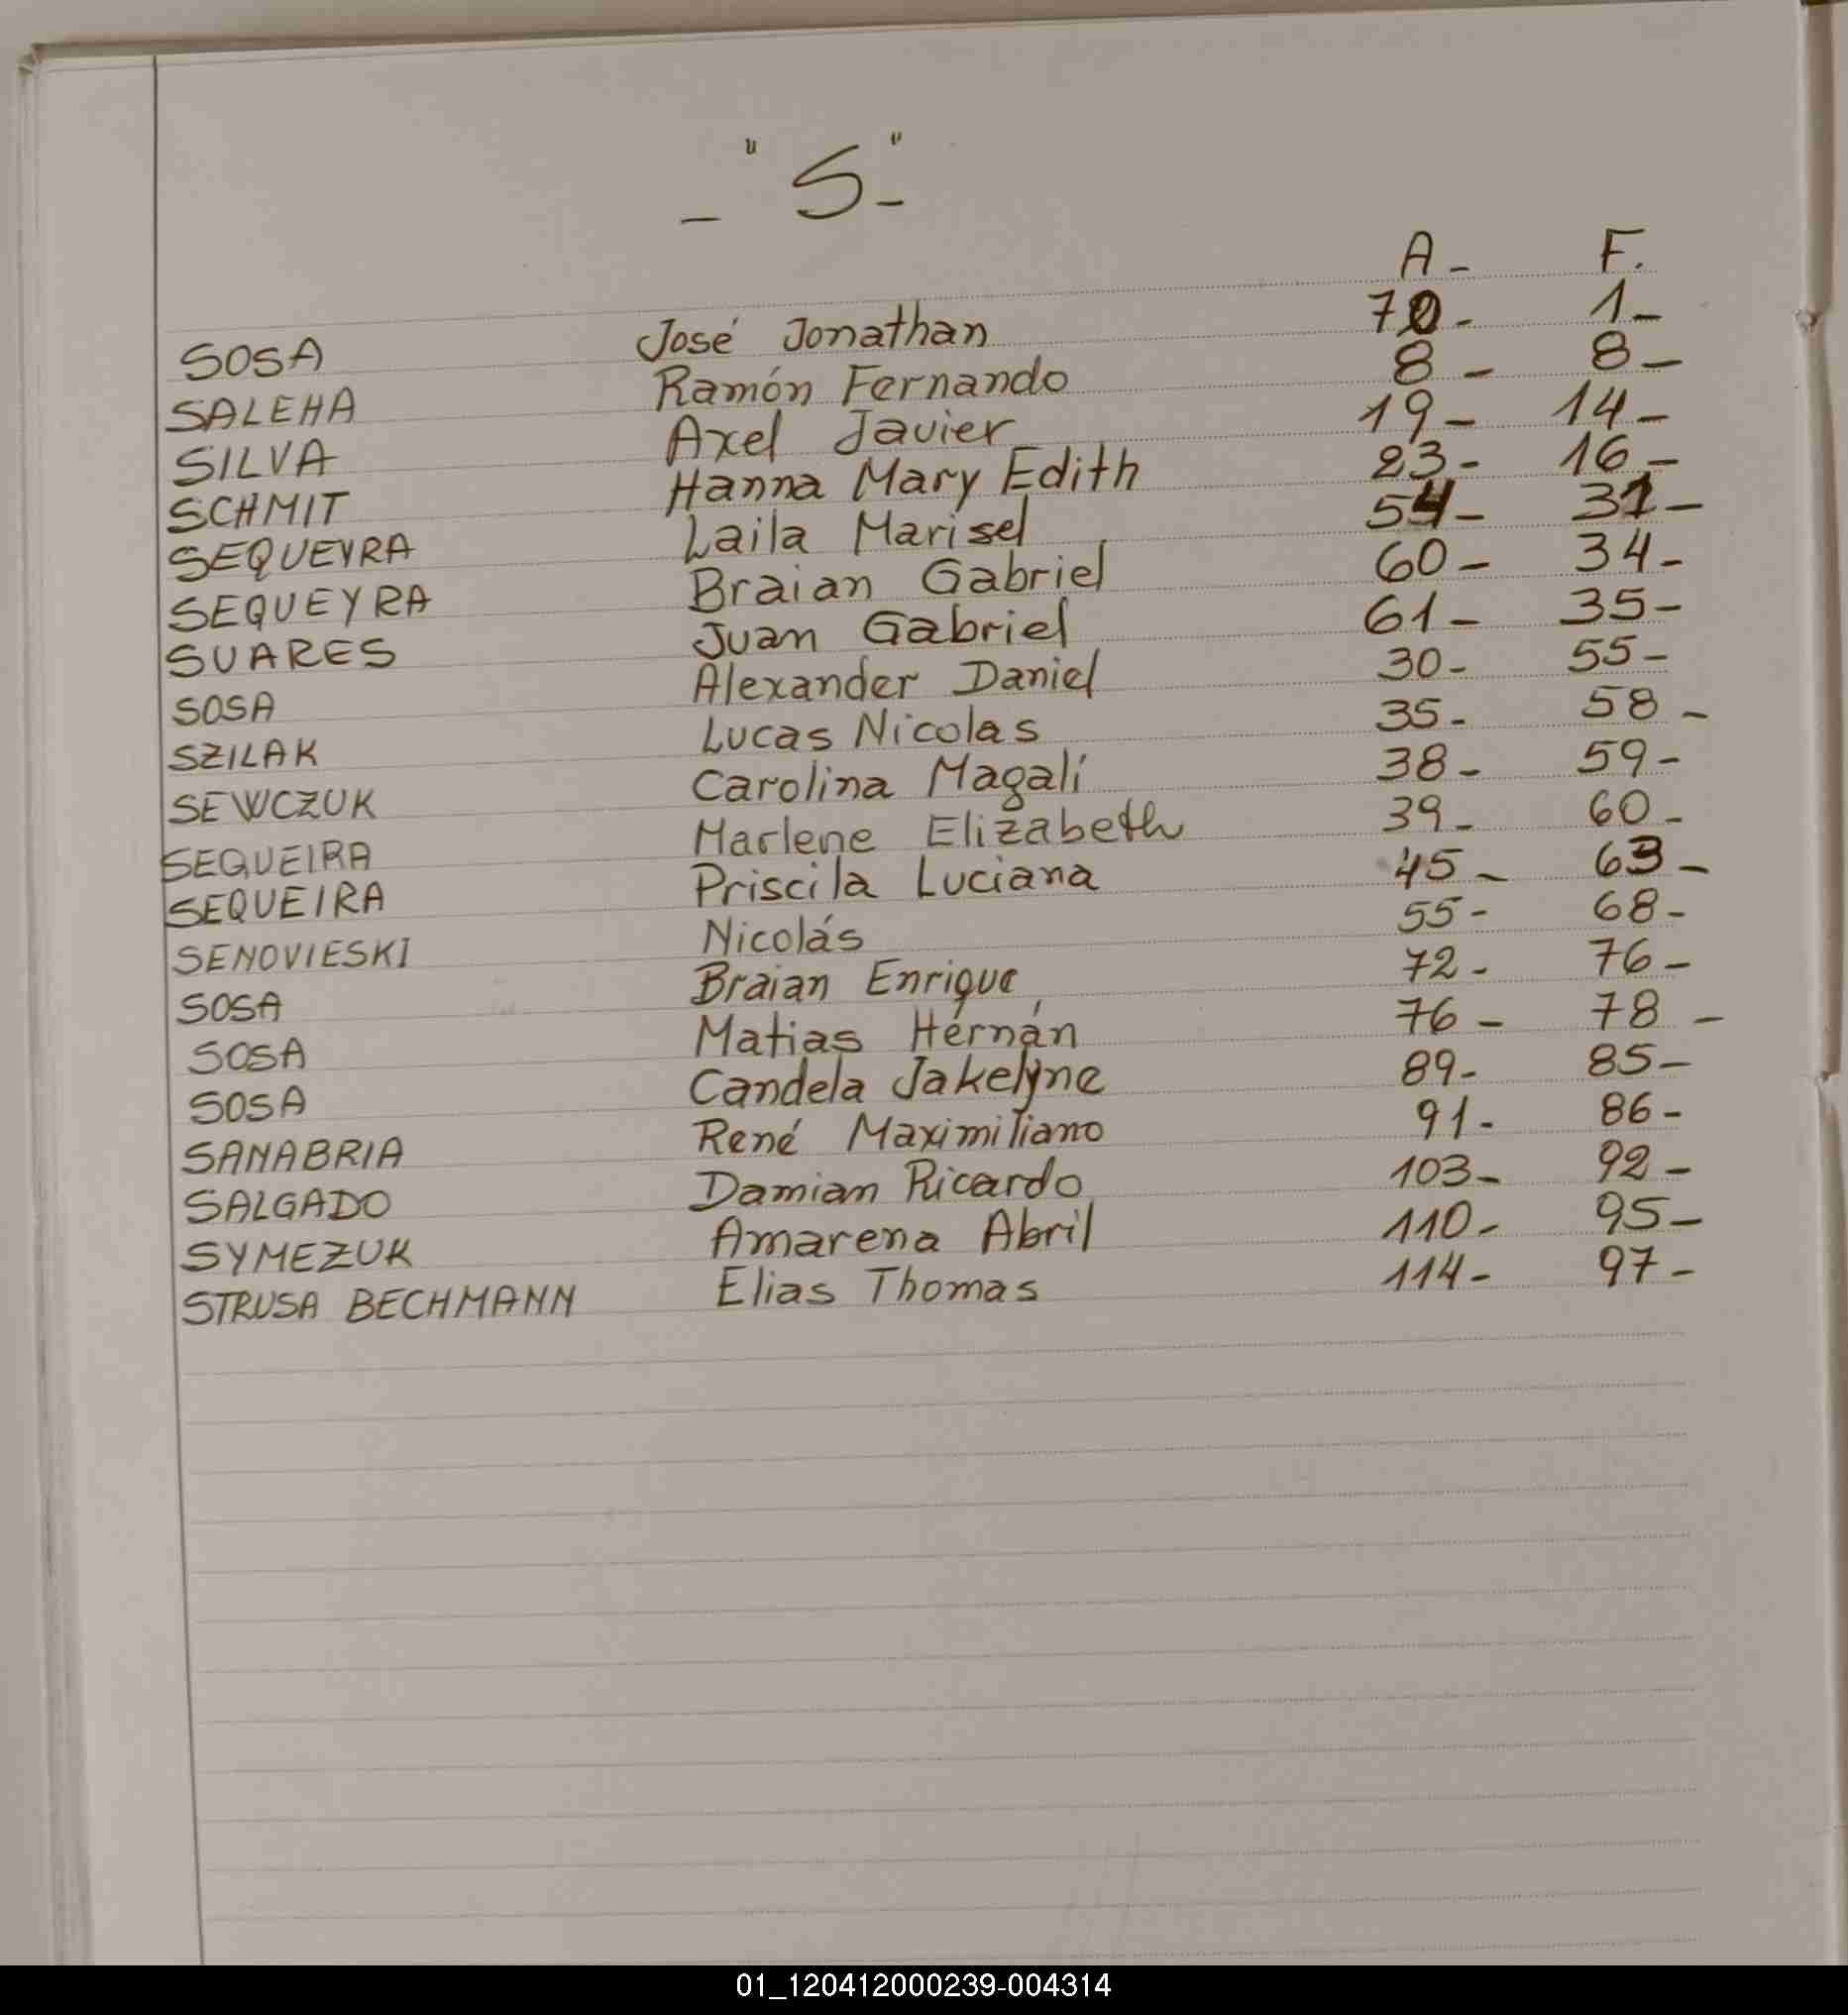 _ "S" _
A_ F.
SOSA José Jonathan 70_ 1_
SALEHA Ramón Fernando 8_ 8_
SILVA Axel Javier 19_ 14_
SCHMIT Hanna Mary Edith 23_ 16_
SEQUEYRA Laila Marisel 54_ 31_
SEQUEYRA Braian Gabriel 60_ 34_
SUARES Juan Gabriel 61_ 35_
SOSA Alexander Daniel 30_ 55_
SZILAK Lucas Nicolas 35_ 58_
SEWCZUK Carolina Magalí 38_ 59_
SEQUEIRA Marlene Elizabeth 39_ 60_
SEQUEIRA Priscila Luciana 45_ 63_
SENOVIESKI Nicolás 55_ 68_
SOSA Braian Enrique 72_ 76_
SOSA Matias Hernán 76_ 78_
SOSA Candela Jakelyne 89_ 85_
SANABRIA René Maximiliano 91_ 86_
SALGADO Damian Ricardo 103_ 92_
SYMEZUK Amarena Abril 110_ 95_
STRUSA BECHMANN Elias Thomas 114_ 97_
01_120412000239-004314